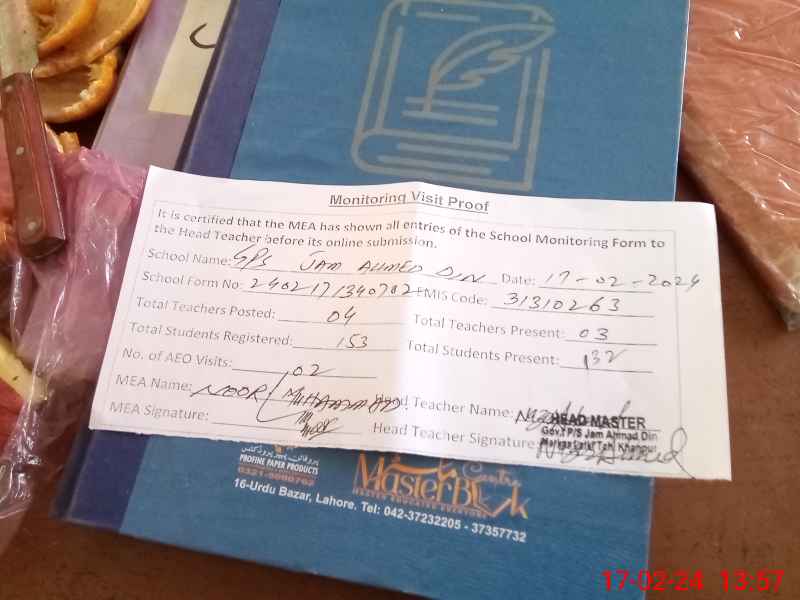 Monitoring Visit Proof
It is certified that the MEA has shown all entries of the School Monitoring Form to
the Head Teacher before its online submission.
School Name: GPS JAM AHMED DIN Date: 17-02-2024
School Form No: 2402171340702 EMIS Code: 31310263
Total Teachers Posted: 04 Total Teachers Present: 03
Total Students Registered: 153 Total Students Present: 132
No. of AEO Visits: 02
MEA Name: NOOR MUHAMMAD Head Teacher Name:
HEAD MASTER
Govt P/S Jam Ahmad Din
Khanpur
MEA Signature: Head Teacher Signature
PROFINE PAPER PRODUCTS
Centre
16-Urdu Bazar, Lahore. Tel: 042-37232205 - 37357732
17-02-24 13:57